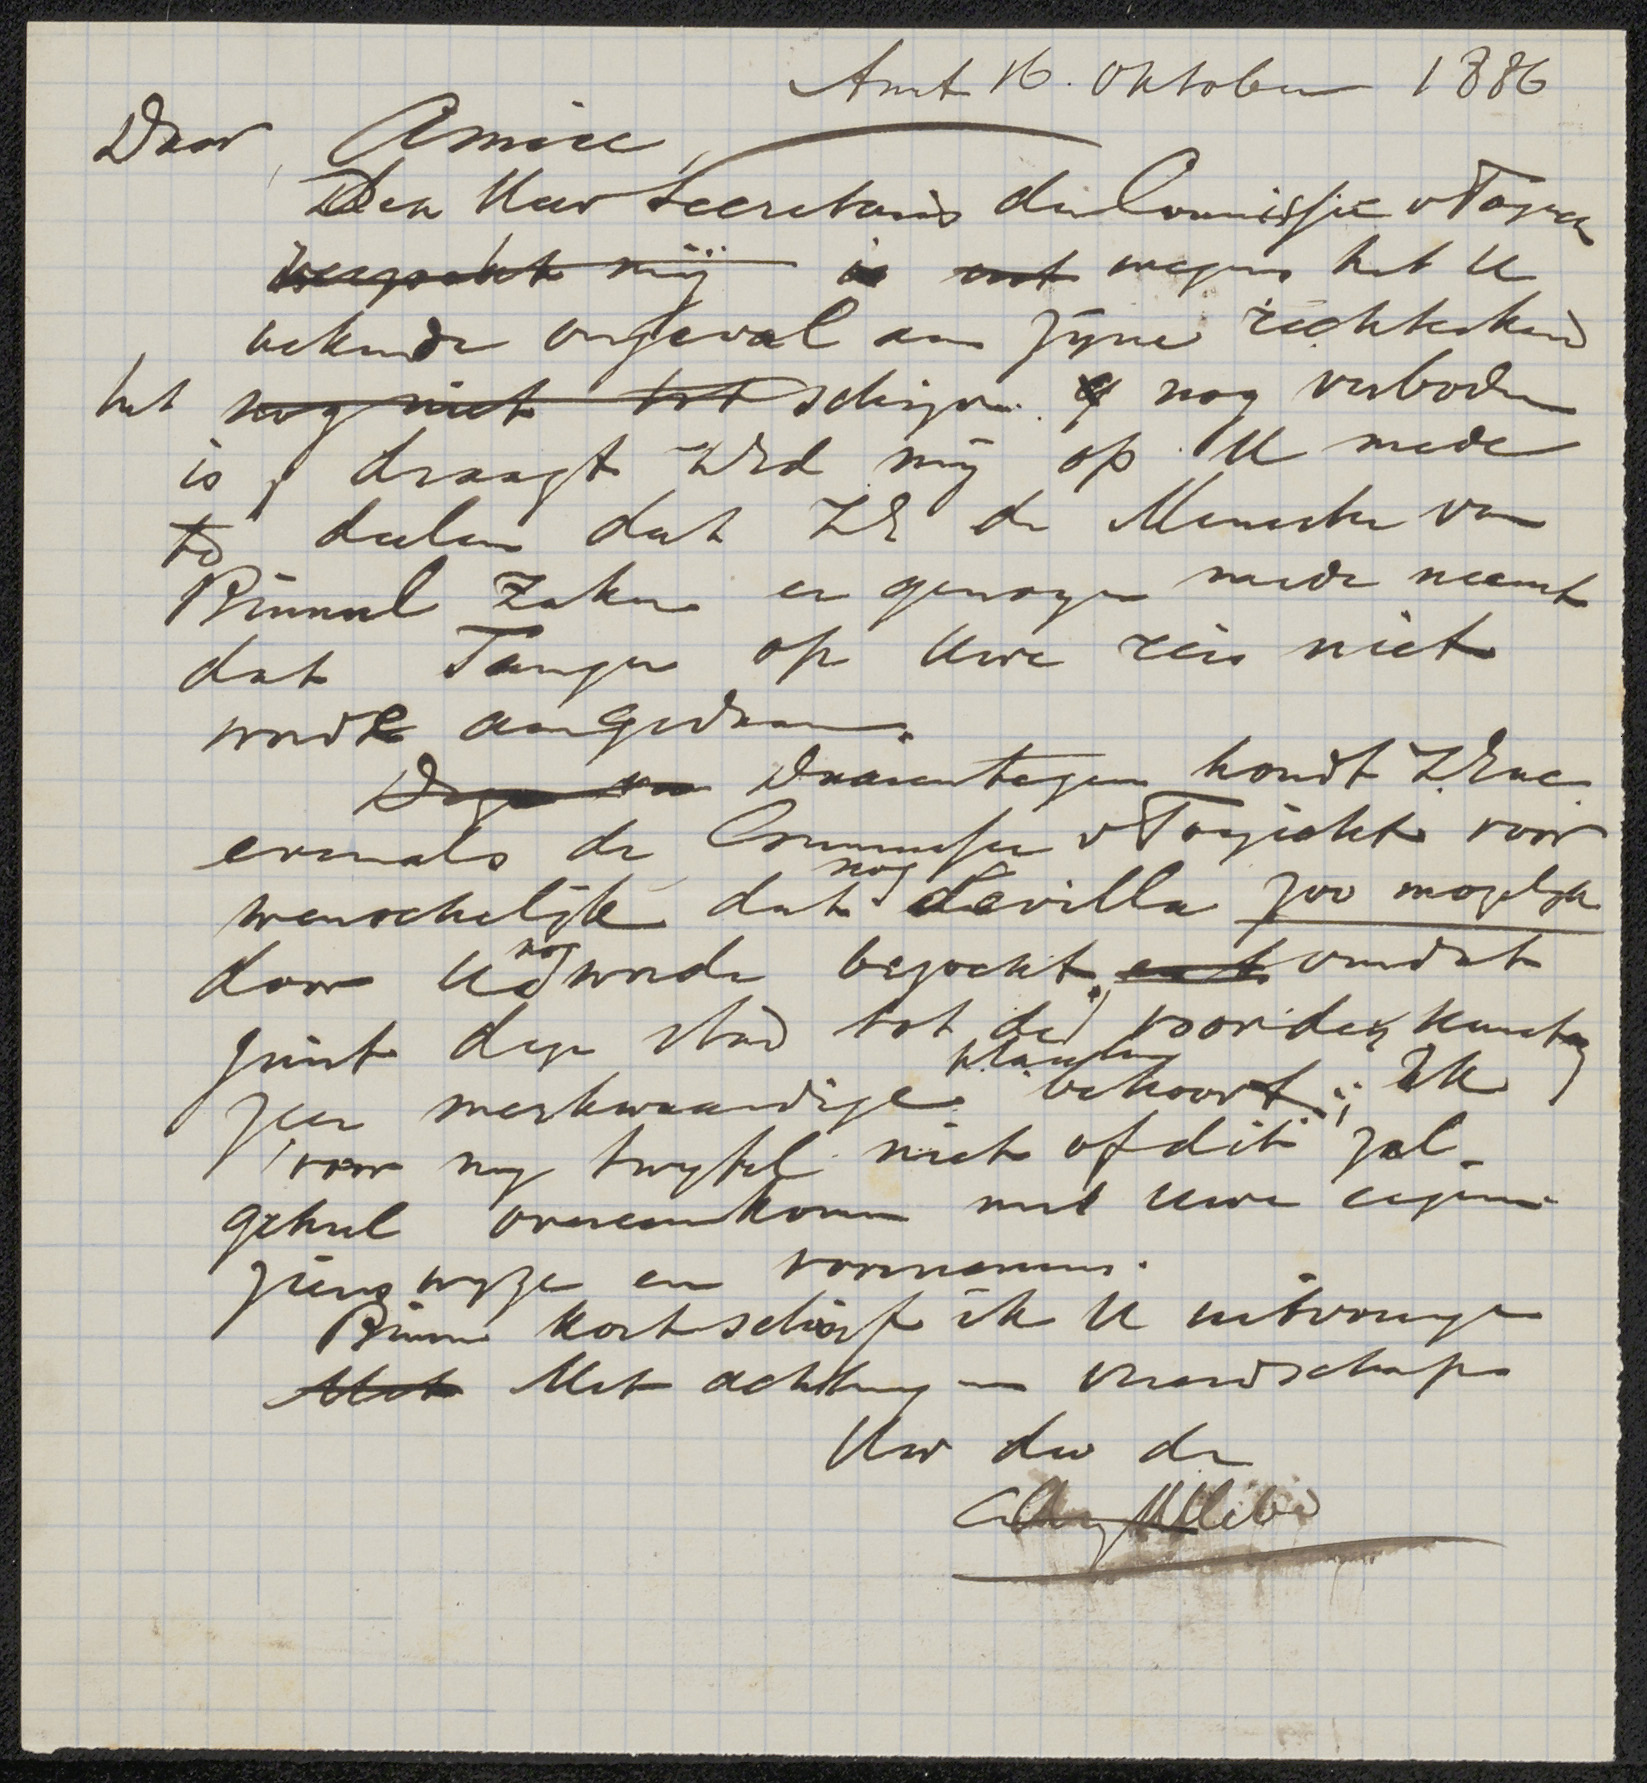 Amst 16. Oktober 1886
Daar Amice,
Den Heer Secretaris der Commissie v Toez
verzoekt mij is wegens het U
bekende ongeval aan zijne rechterhand
het nog niet tot schrijven nog verboden
is, draagt ZEd mij op U mede
te deelen dat ZE de Minister van
Binnenl Zaken er genoegen mede neemt
dat Tanger op Uwe reis niet
worde aangedaan.
Daarentegen houdt Z.Exc.
evenals de Commissie v Toezicht voor
wenschelijk dat nog Sevilla zoo mogelijk
door U nog worde bezocht, omdat
juist deze stad tot de voor den kunstenaar
zeer merkwaardige plaatsen behoort; Ik
voor mij twyfel niet of dit zal
geheel overeenkomen met Uwe eigene
zienswyze en voornemens.
Binnen kort schrijf ik U uitvoeriger
Met Met achting en vriendschap
Uw dw dr